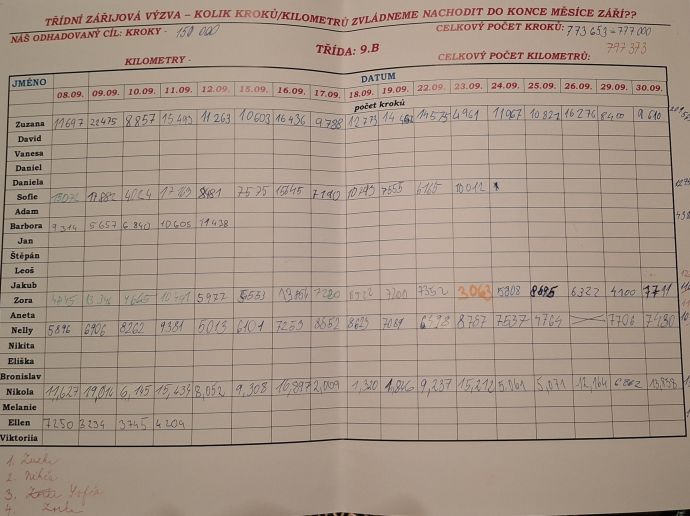 TŘÍDNÍ ZÁŘIJOVÁ VÝZVA – KOLIK KROKŮ/KILOMETRŮ ZVLÁDNEME NACHODIT DO KONCE MĚSÍCE ZÁŘÍ??
NÁŠ ODHADOVANÝ CÍL: KROKY - 150 000 CELKOVÝ POČET KROKŮ: 773 653 = 777 000
797 373
TŘÍDA: 9.B
KILOMETRY - CELKOVÝ POČET KILOMETRŮ:
JMÉNO DATUM
08.09. 09.09. 10.09. 11.09. 12.09. 15.09. 16.09. 17.09. 18.09. 19.09. 22.09. 23.09. 24.09. 25.09. 26.09. 29.09. 30.09.
počet kroků
Zuzana 11697 8857 15493 11263 10603 16436 9738 12773 14575 4961 11967 16276 8400 9610
David
Vanesa
Daniel
Daniela
Sofie 17882 7575 15645 7190 10293 7555 6165 10012
Adam
Barbora 9314 5657 6840 10605 11438
Jan
Štěpán
Leoš
Jakub
Zora 5977 7200 7352 3063 8695 6322 4100 7711
Aneta
Nelly 5896 6906 8262 9381 5013 6101 7259 8652 8623 7081 8757 7537 4764 7706 7430
Nikita
Eliška
Bronislav
Nikola 11,627 19,014 6,145 15,434 8,052 9,308 10,897 2,009 1,320 9,237 15,212 5,061 5,071 12,164 13,838
Melanie
Ellen 7250 3234 3745 4204
Viktoriia
1. Zuzka
2.
3. Zorka Sofča
4. Zorka